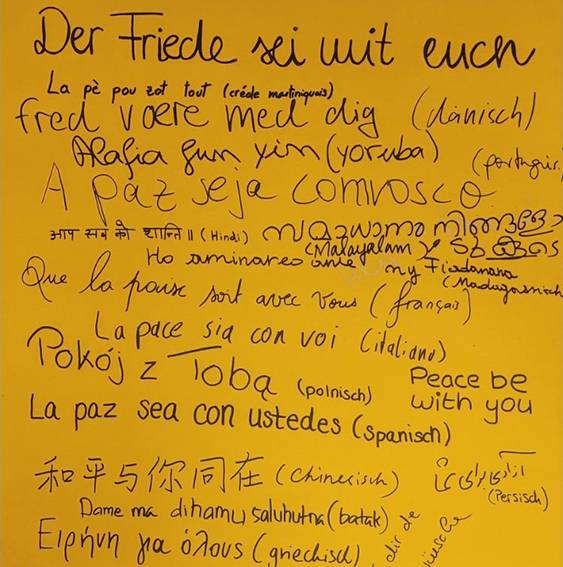 Der Friede sei mit euch
La pè pou zot tout (créole martiniquais)
fred vaere med dig (dänisch)
Alafia fun yin (yoruba)
(portugir.
A paz seja comvosco
आप सब को शान्ति ॥ (Hindi)
സമാധാനം നിങ്ങളോ
(Malayalam)
Ho aminareo my Fiadanana
(Madagassisch
Que la paix soit avec Vous (français)
La pace sia con voi (italiano)
Pokój z Tobą (polnisch)
Peace be with you
La paz sea con ustedes (spanisch)
和平与你同在 (Chinesisch)
(Persisch)
Dame ma dihamu saluhutna (batak)
Ειρήνη για όλους (griechisch)